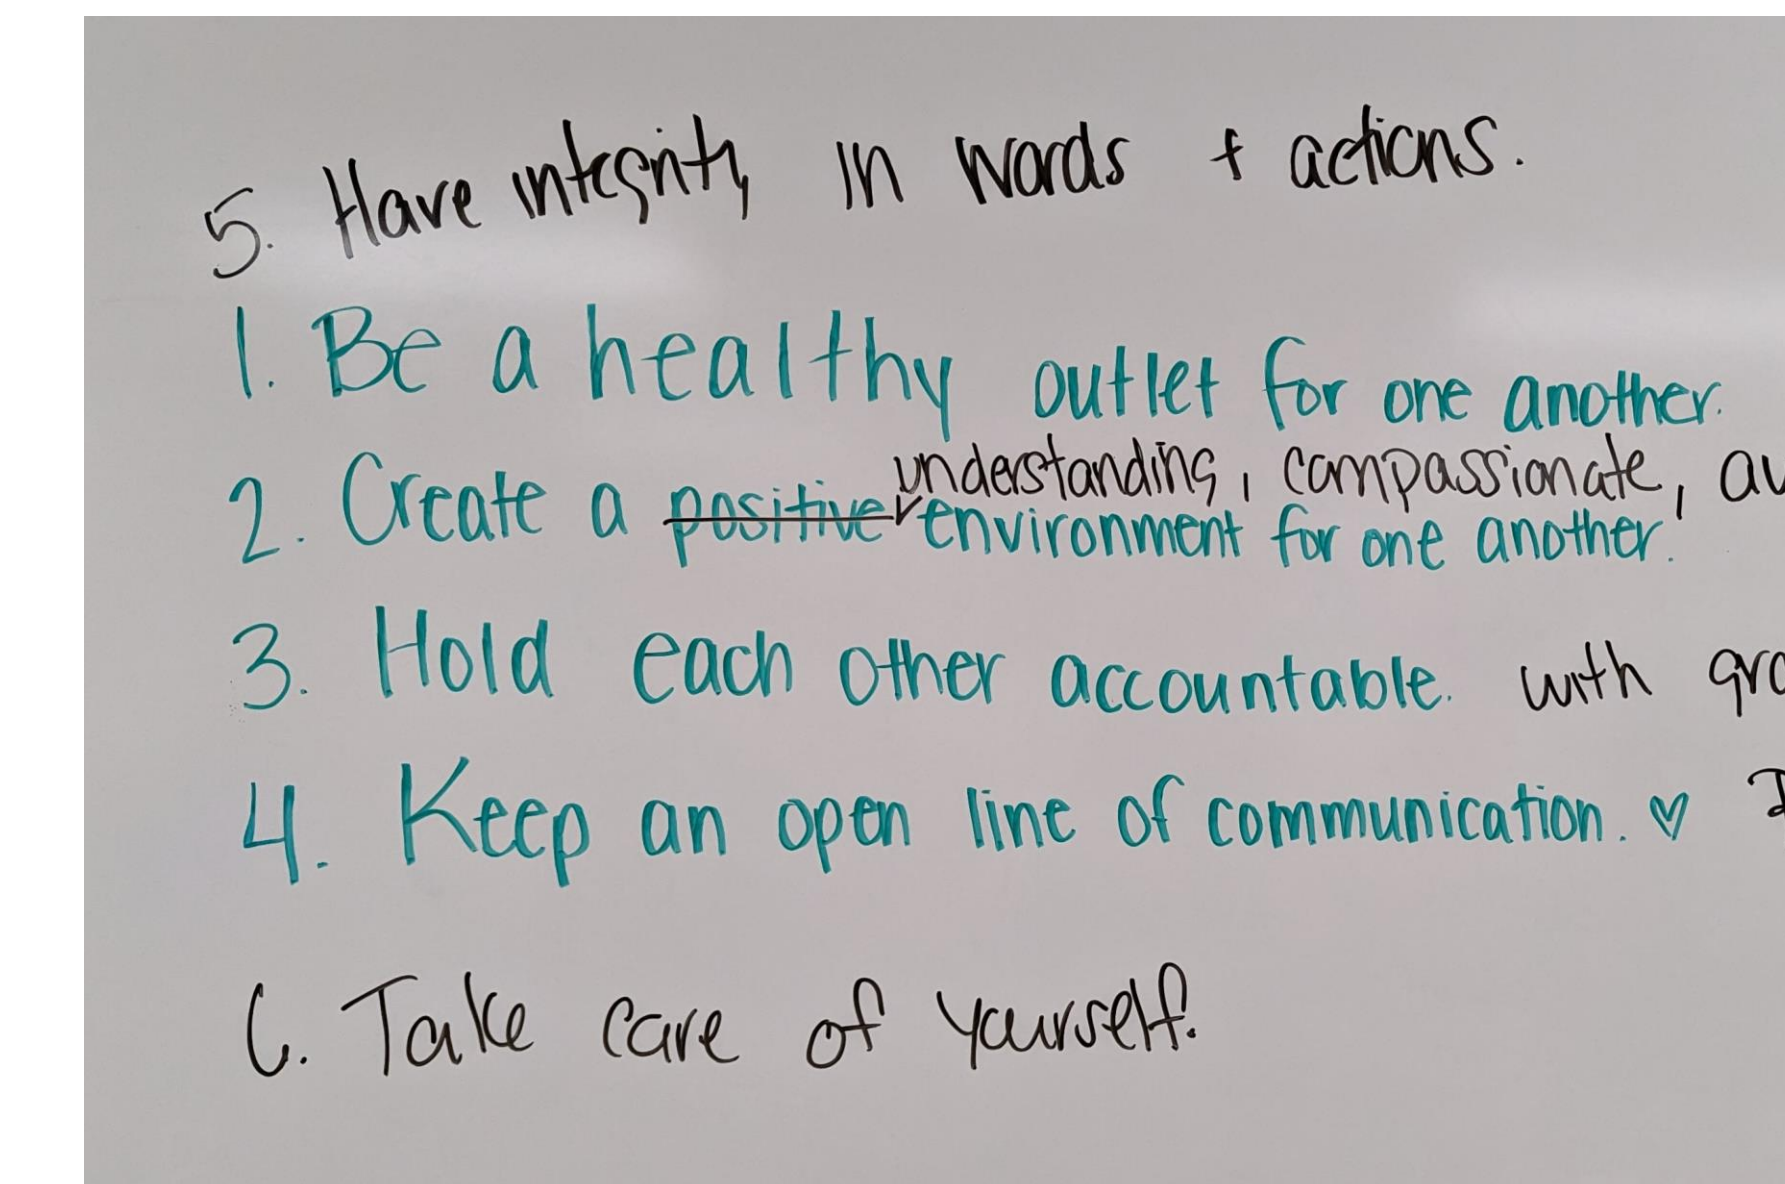 5. Have integrity in words + actions.
1. Be a healthy outlet for one another.
understanding, compassionate,
2. Create a positive environment for one another.
3. Hold each other accountable. with
4. Keep an open line of communication. ♡
6. Take care of yourself.